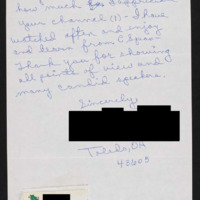 how much I appreciate
your channel (1) - I have
watched often and enjoy
and learn from C Span -
Thank you for showing
all points of view and
many candid speakers.
Sincerely,
Toledo, OH
43605